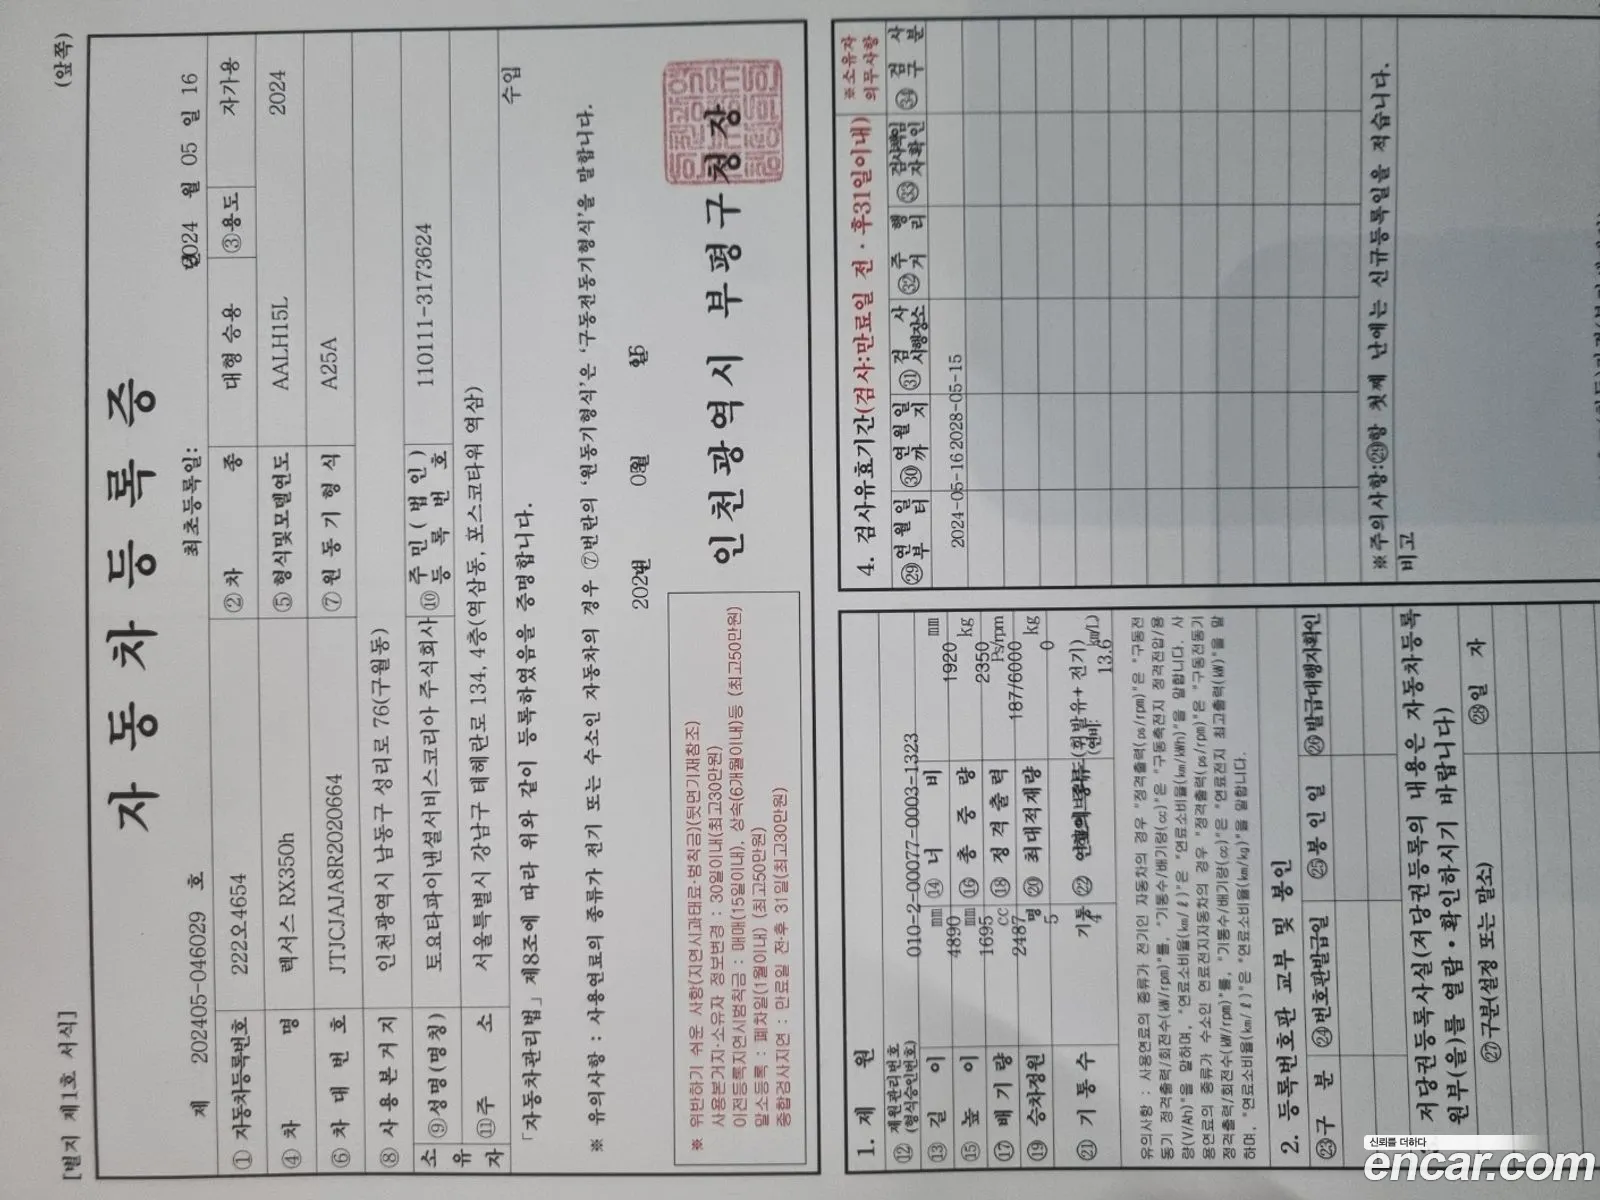 [별지 제1호 서식]
(앞쪽)
자동차등록증
제 202405-046029 호
최초등록일: 2024 월 05 일 16
① 자동차등록번호 222오4654 ② 차 종 대형 승용 ③용도 자가용
④ 차 명 렉서스 RX350h ⑤ 형식및모델연도 AALH15L 2024
⑥ 차 대 번 호 JTJCJAJA8R2020664 ⑦ 원 동 기 형 식 A25A
⑧ 사 용 본 거 지 인천광역시 남동구 성리로 76(구월동)
소유자 ⑨성명(명칭) 도요타파이낸셜서비스코리아 주식회사 ⑩ 주 민 ( 법 인 ) 등 록 번 호 110111-3173624
⑪주 소 서울특별시 강남구 테헤란로 134, 4층(역삼동, 포스코타워 역삼)
「자동차관리법」 제8조에 따라 위와 같이 등록하였음을 증명합니다.
수입
※ 유의사항 : 사용연료의 종류가 전기 또는 수소인 자동차의 경우 ⑦번란의 '원동기형식'은 '구동전동기형식'을 말합니다.
※ 위반하기 쉬운 사항(지연시과태료·범칙금)(뒷면기재참조)
사용본거지·소유자 정보변경 : 30일이내(최고30만원)
이전등록지연시범칙금 : 매매(15일이내), 상속(6개월이내)등 (최고50만원)
말소등록 : 폐차일(1월이내) (최고50만원)
종합검사지연 : 만료일 전후 31일(최고30만원)
인천광역시 부평구청장
1. 제 원
⑫ 제원관리번호 (형식승인번호) 010-2-00077-0003-1323
⑬ 길 이 4890 mm ⑭ 너 비 1920 mm
⑮ 높 이 1695 mm ⑯ 총 중 량 2350 kg
⑰ 배 기 량 2487 cc ⑱ 정 격 출 력 187/6000 Ps/rpm
⑲ 승차정원 5 명 ⑳ 최대적재량 0 kg
㉑ 기 통 수 4 기통 ㉒ (휘발유+ 전기) (연비: 13.6 km/L)
유의사항 : 사용연료의 종류가 전기인 자동차의 경우 "정격출력(ps/rpm)"은 "구동전
동기 정격출력/회전수(kW/rpm)"를, "기통수/배기량(cc)"은 "구동축전지 정격전압/용
량(V/Ah)"을 말하며, "연료소비율(km/ℓ)"은 "연료소비율(km/kWh)"을 말합니다. 사
용연료의 종류가 수소인 연료전지자동차의 경우 "정격출력(ps/rpm)"은 "구동전동기
정격출력/회전수(kW/rpm)"를, "기통수/배기량(cc)"은 "연료전지 최고출력(kW)"을 말
하며, "연료소비율(km/ℓ)"은 "연료소비율(km/kg)"을 말합니다.
2. 등록번호판 교부 및 봉인
㉓구 분 ㉔번호판발급일 ㉕봉 인 일 ㉖발급대행자확인
저당권등록사실(저당권등록의 내용은 자동차등록
원부(을)를 열람·확인하시기 바랍니다)
㉗구분(설정 또는 말소) ㉘일 자
4. 검사유효기간(검사:만료일 전·후31일이내)
※소유자 의무사항
㉙연 월 일 부 터 ㉚연 월 일 까 지 ㉛검 사 시행장소 ㉜주 행 거 리 ㉝검사책임 자확인 ㉞검 사 구 분
2024-05-16 2028-05-15
※주의사항:㉙항 첫째 난에는 신규등록일을 적습니다.
비고
신뢰를 더하다
encar.com